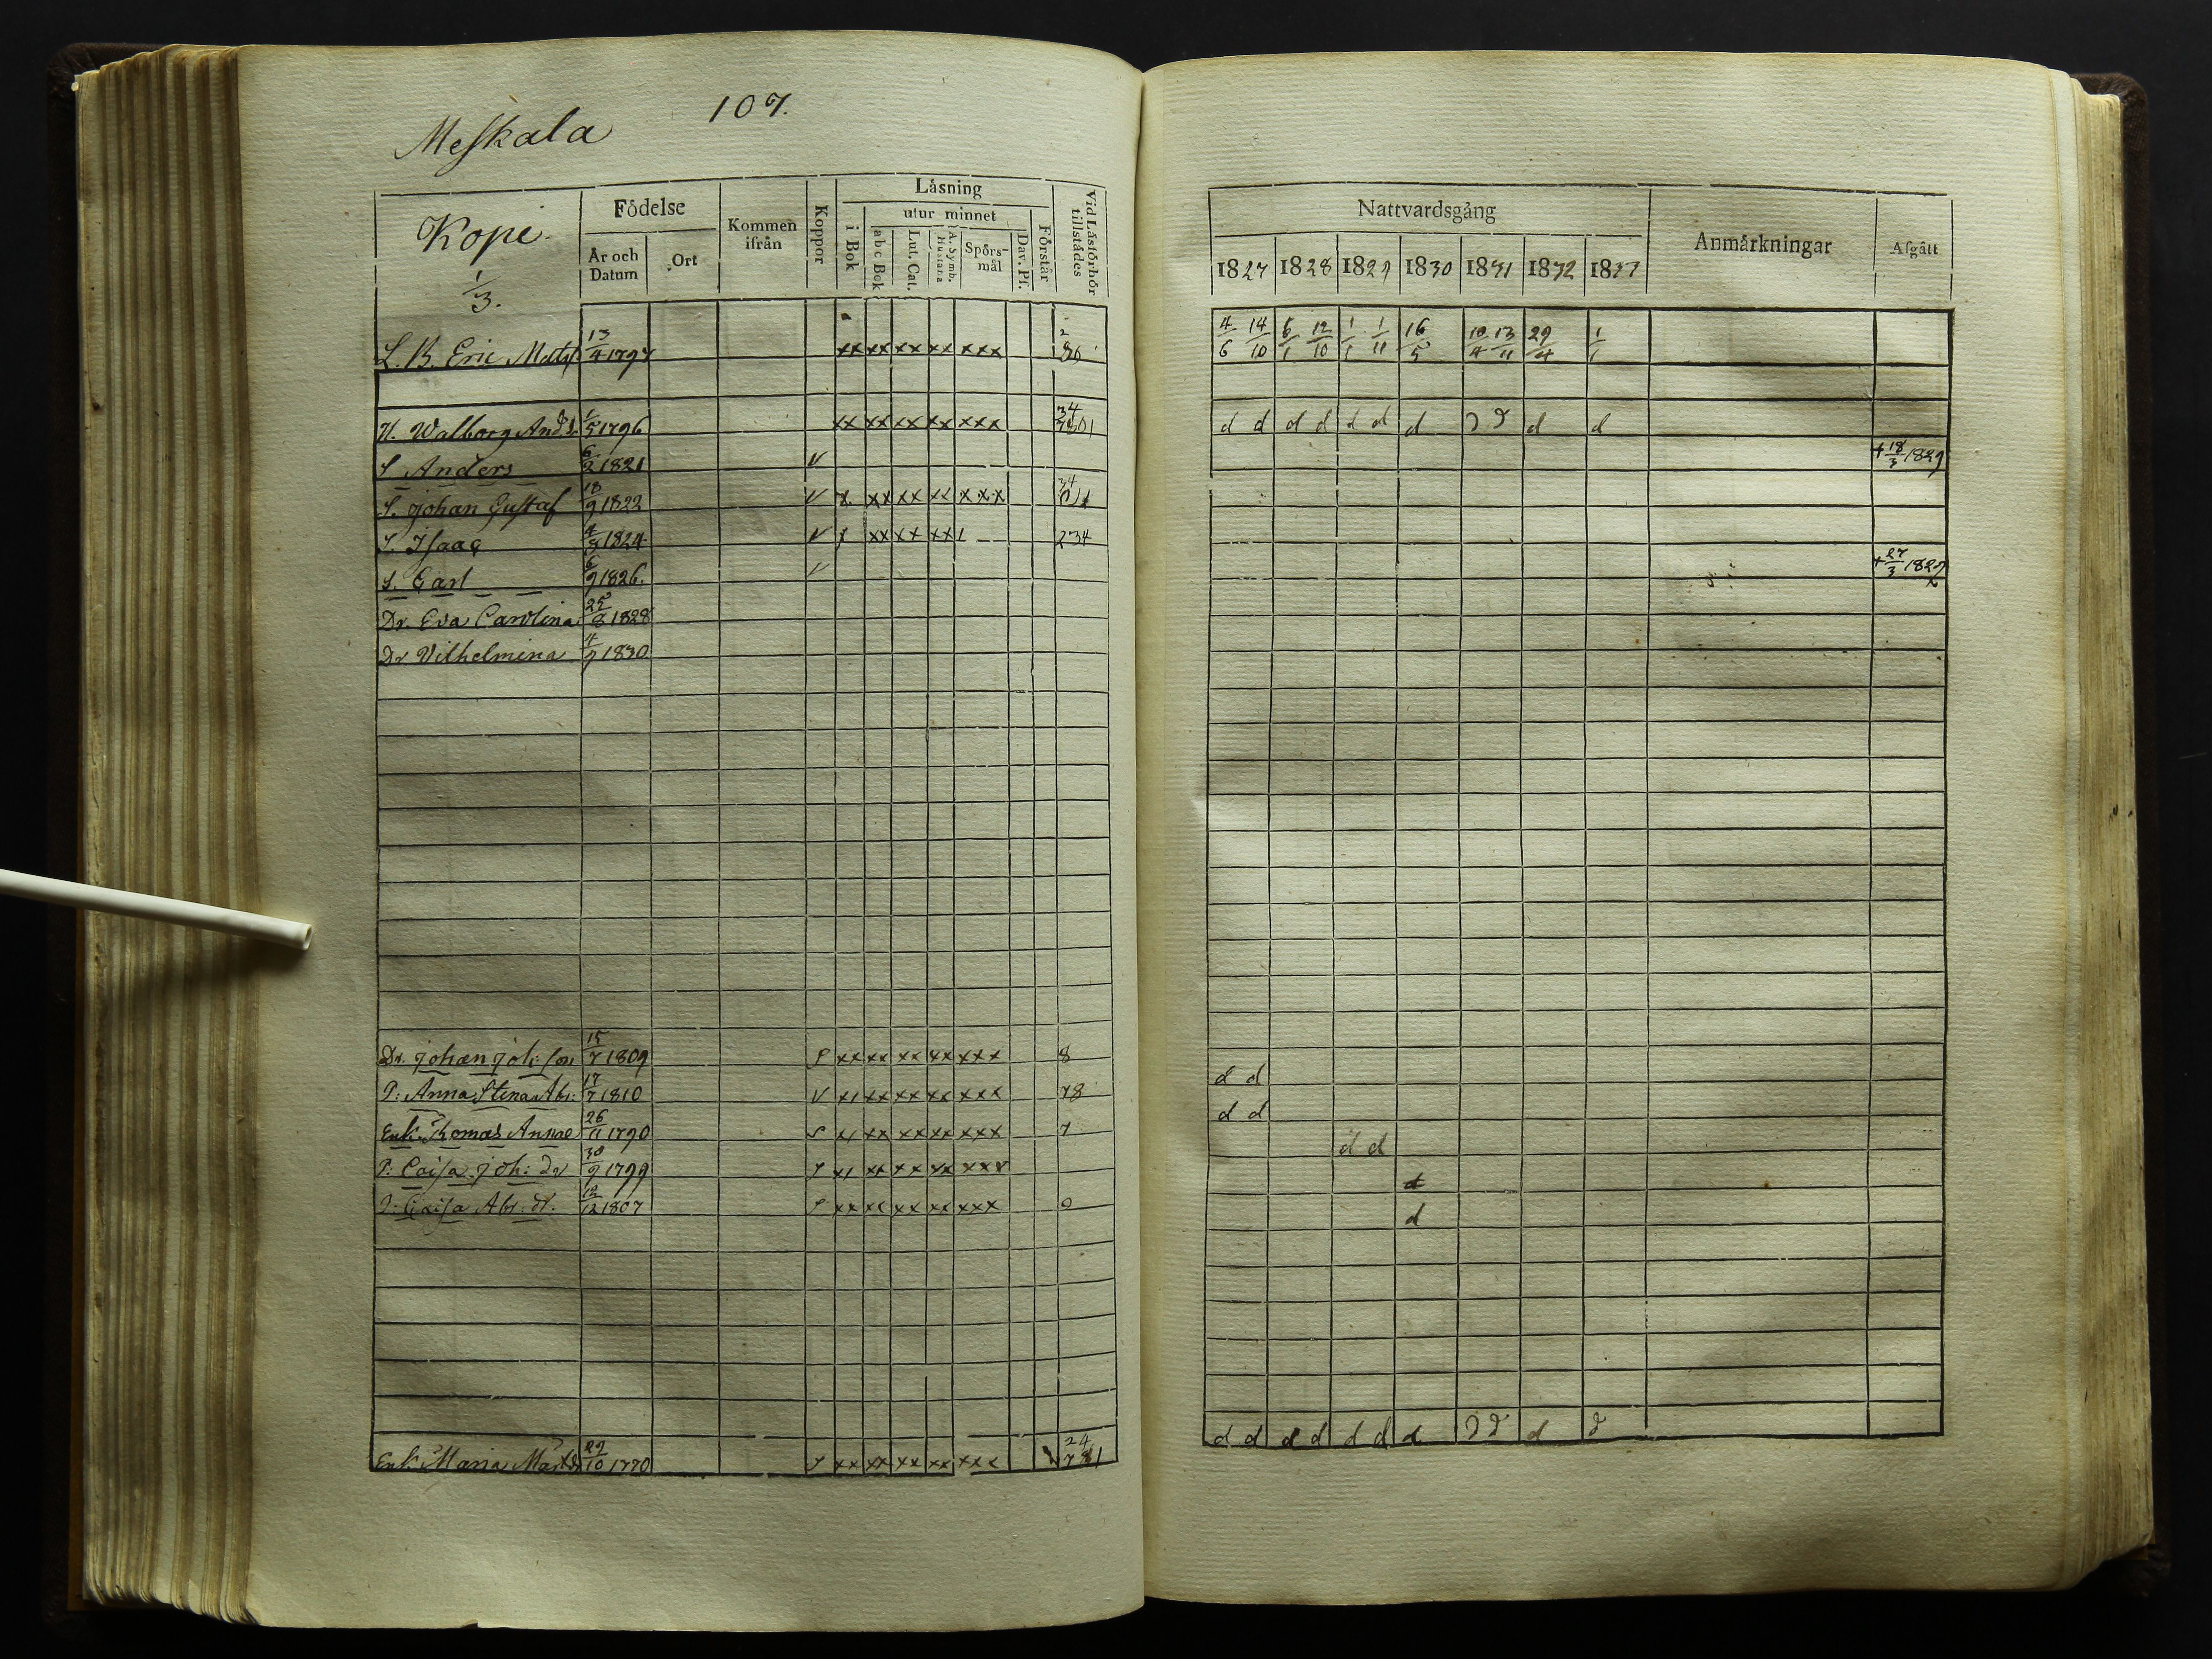 107.
Meskala
Kopi
1/3.
Födelse
År och Datum
Ort
Kommen ifrån
Koppor
Läsning
i Bok
utur minnet
a b c Bok
Lut. Cat.
A. Symb. Hustafla
Spörsmål
Dav. Ps.
Förstår
Vid Läsförhör tillstädes
L. B. Eric 13/4 1797 xx xx xx xx xxx
H. Walborg And. 1/5 1796 xx xx xx xx xxx
S Anders 6/2 1821 V
S. Johan Gustaf 18/9 1822 V x xx xx xx xxx
S. Isaac 4/3 1824 V xx xx xx 234
S. Carl 6/9 1826.
Dr. Eva Carolina 25/8 1828
Dr Vilhelmina 4/9 1830
Dr. Johan Joh:son 15/7 1809 xx xx xx xx xxx 8
P: Anna Stena Abr: 17/7 1810 V xx xx xx xxx 78
Enk. Thomas Annae 26/11 1790 xx xx xx xxx 7
P: Caisa Joh: dr 30/9 1799 xx xx xx
P: Caisa Abr. dr. 12/12 1807 xx xx xx xx xxx 0
Enk. Maria Mart.dr 29/10 1770 xx xx xx xx xxx
Nattvardsgång
1827 1828 1829 1830 1831 1832 1833
Anmärkningar
Afgått
4/6 14/10 6/1 12/10 1/1 1/11 16/5 10/4 13/11 29/4 1/1
d d d d d d d d d d d
+ 18/3 1829
+ 27/3 1829
d d
d d
d d
d
d
d d d d d d d d d d d